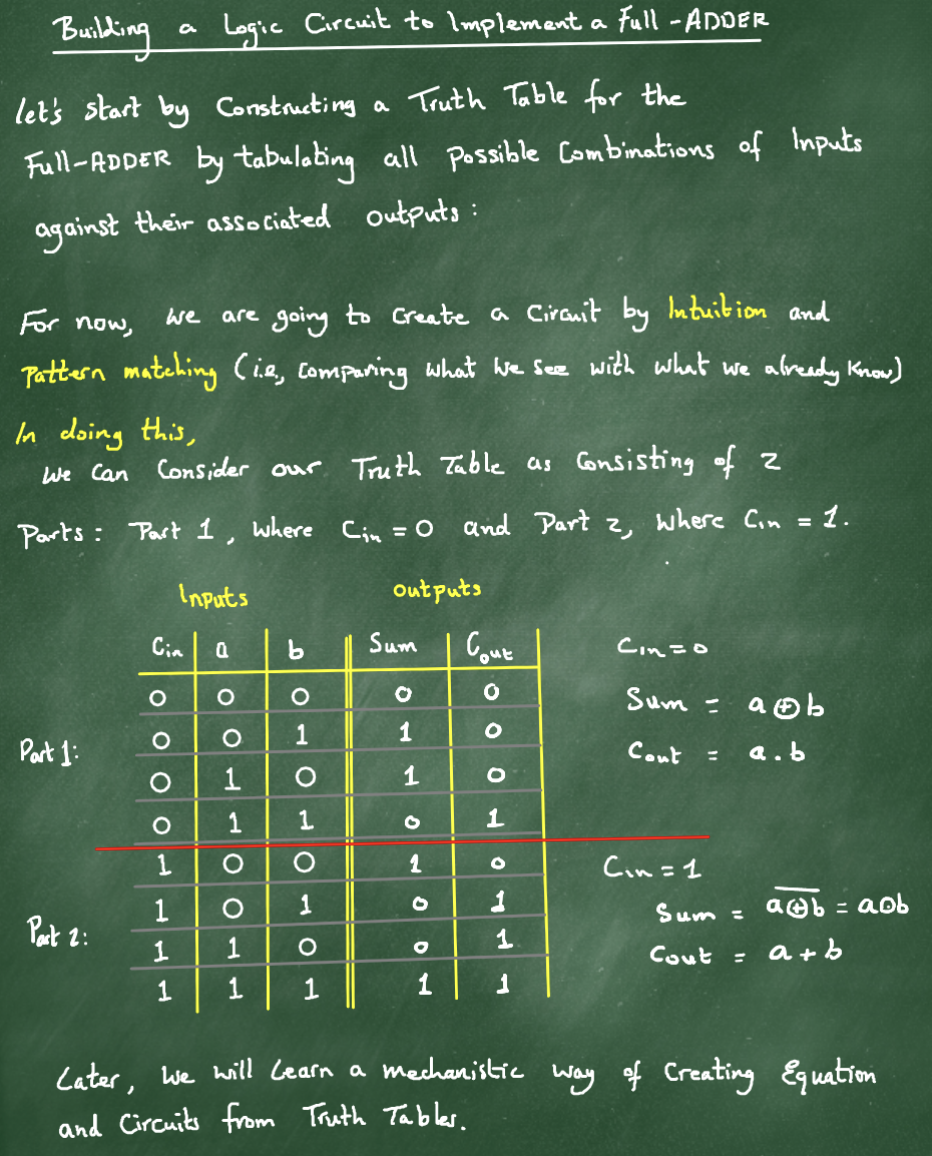 Building a Logic Circuit to Implement a Full-ADDER
let's start by Constructing a Truth Table for the
Full-ADDER by tabulating all Possible Combinations of Inputs
against their associated outputs :
For now, we are going to Create a Circuit by Intuition and
Pattern matching (i.e, Comparing what we see with what we already know)
In doing this,
we can Consider our Truth Table as Consisting of 2
Parts : Part 1, where Cin = 0 and Part 2, where Cin = 1.
Inputs outputs
Cin a b Sum Cout Cin = 0
0 0 0 0 0 Sum = a ⊕ b
0 0 1 1 0 Cout = a . b
Part 1:
0 1 0 1 0
0 1 1 0 1
1 0 0 1 0 Cin = 1
1 0 1 0 1 Sum = a̅⊕̅b̅ = a⊙b
Part 2:
1 1 0 0 1 Cout = a + b
1 1 1 1 1
Later, we will learn a mechanistic way of Creating Equation
and Circuits from Truth Tables.